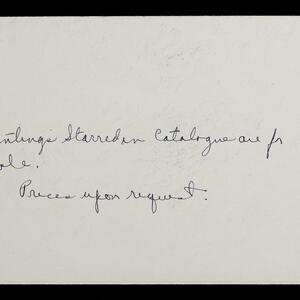 intings Starred in Catalogue are f
ale.
Prices upon request.